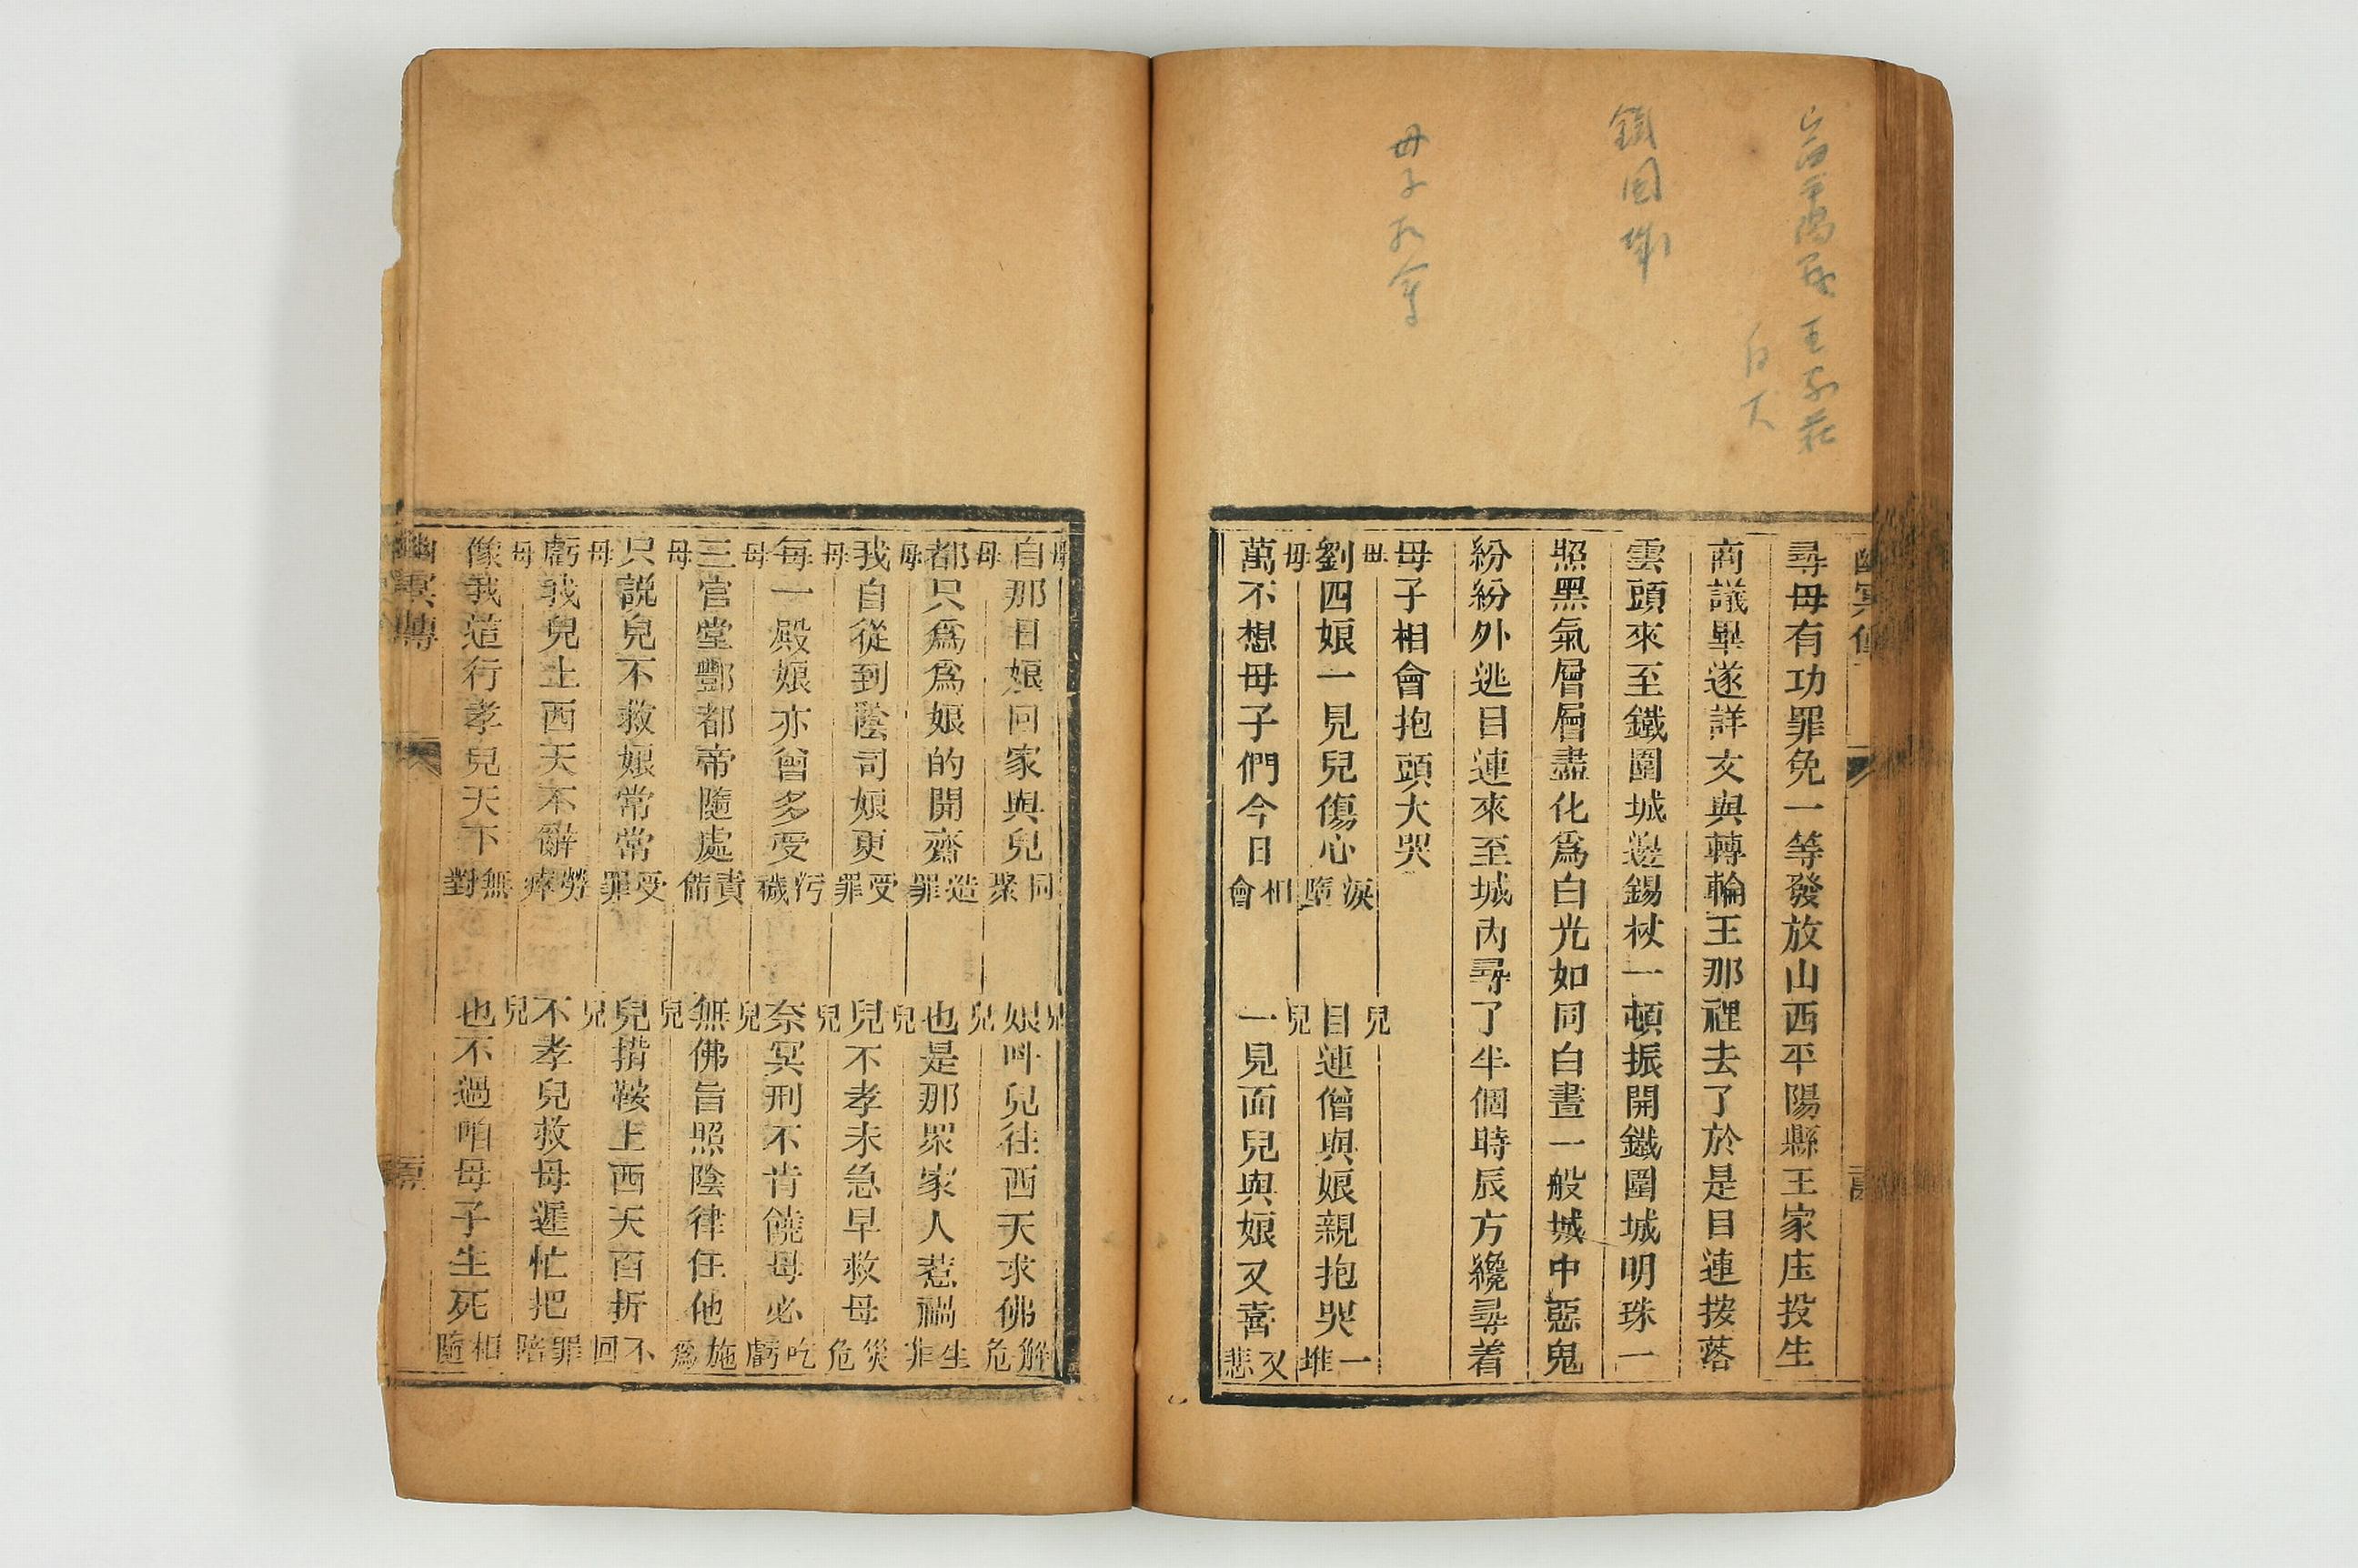 山西平陽縣 王家莊
白天
鐵圍城
母子相會
尋母有功罪免一等發放山西平陽縣王家庄投生
商議畢遂詳文與轉輪王那裡去了於是目連按落
雲頭來至鐵圍城邊錫杖一頓振開鐵圍城明珠一
照黑氣層層盡化爲白光如同白晝一般城中惡鬼
紛紛外逃目連來至城內尋了半個時辰方纔尋着
母子相會抱頭大哭
母劉四娘一見兒傷心淚墮 兒目連僧與娘親抱哭一堆
母萬不想母子們今日相會 兒一見面兒與娘又喜又悲
母自那日娘回家與兒同聚 兒娘叫兒往西天求佛解危
母都只爲爲娘的開齋造罪 兒也是那眾家人惹禍生非
母我自從到陰司娘更受罪 兒兒不孝未急早救母災危
母每一殿娘亦曾多受污穢 兒奈冥刑不肯饒母必吃虧
母三官堂酆都帝隨處責備 兒無佛旨照陰律任他施爲
母只説兒不救娘常常受罪 兒兒揹鞍上西天百折不回
母虧我兒上西天不辭勞瘁 兒不孝兒救母遲忙把罪陪
母像我這行孝兒天下無對 兒也不過咱母子生死相隨
幽冥傳